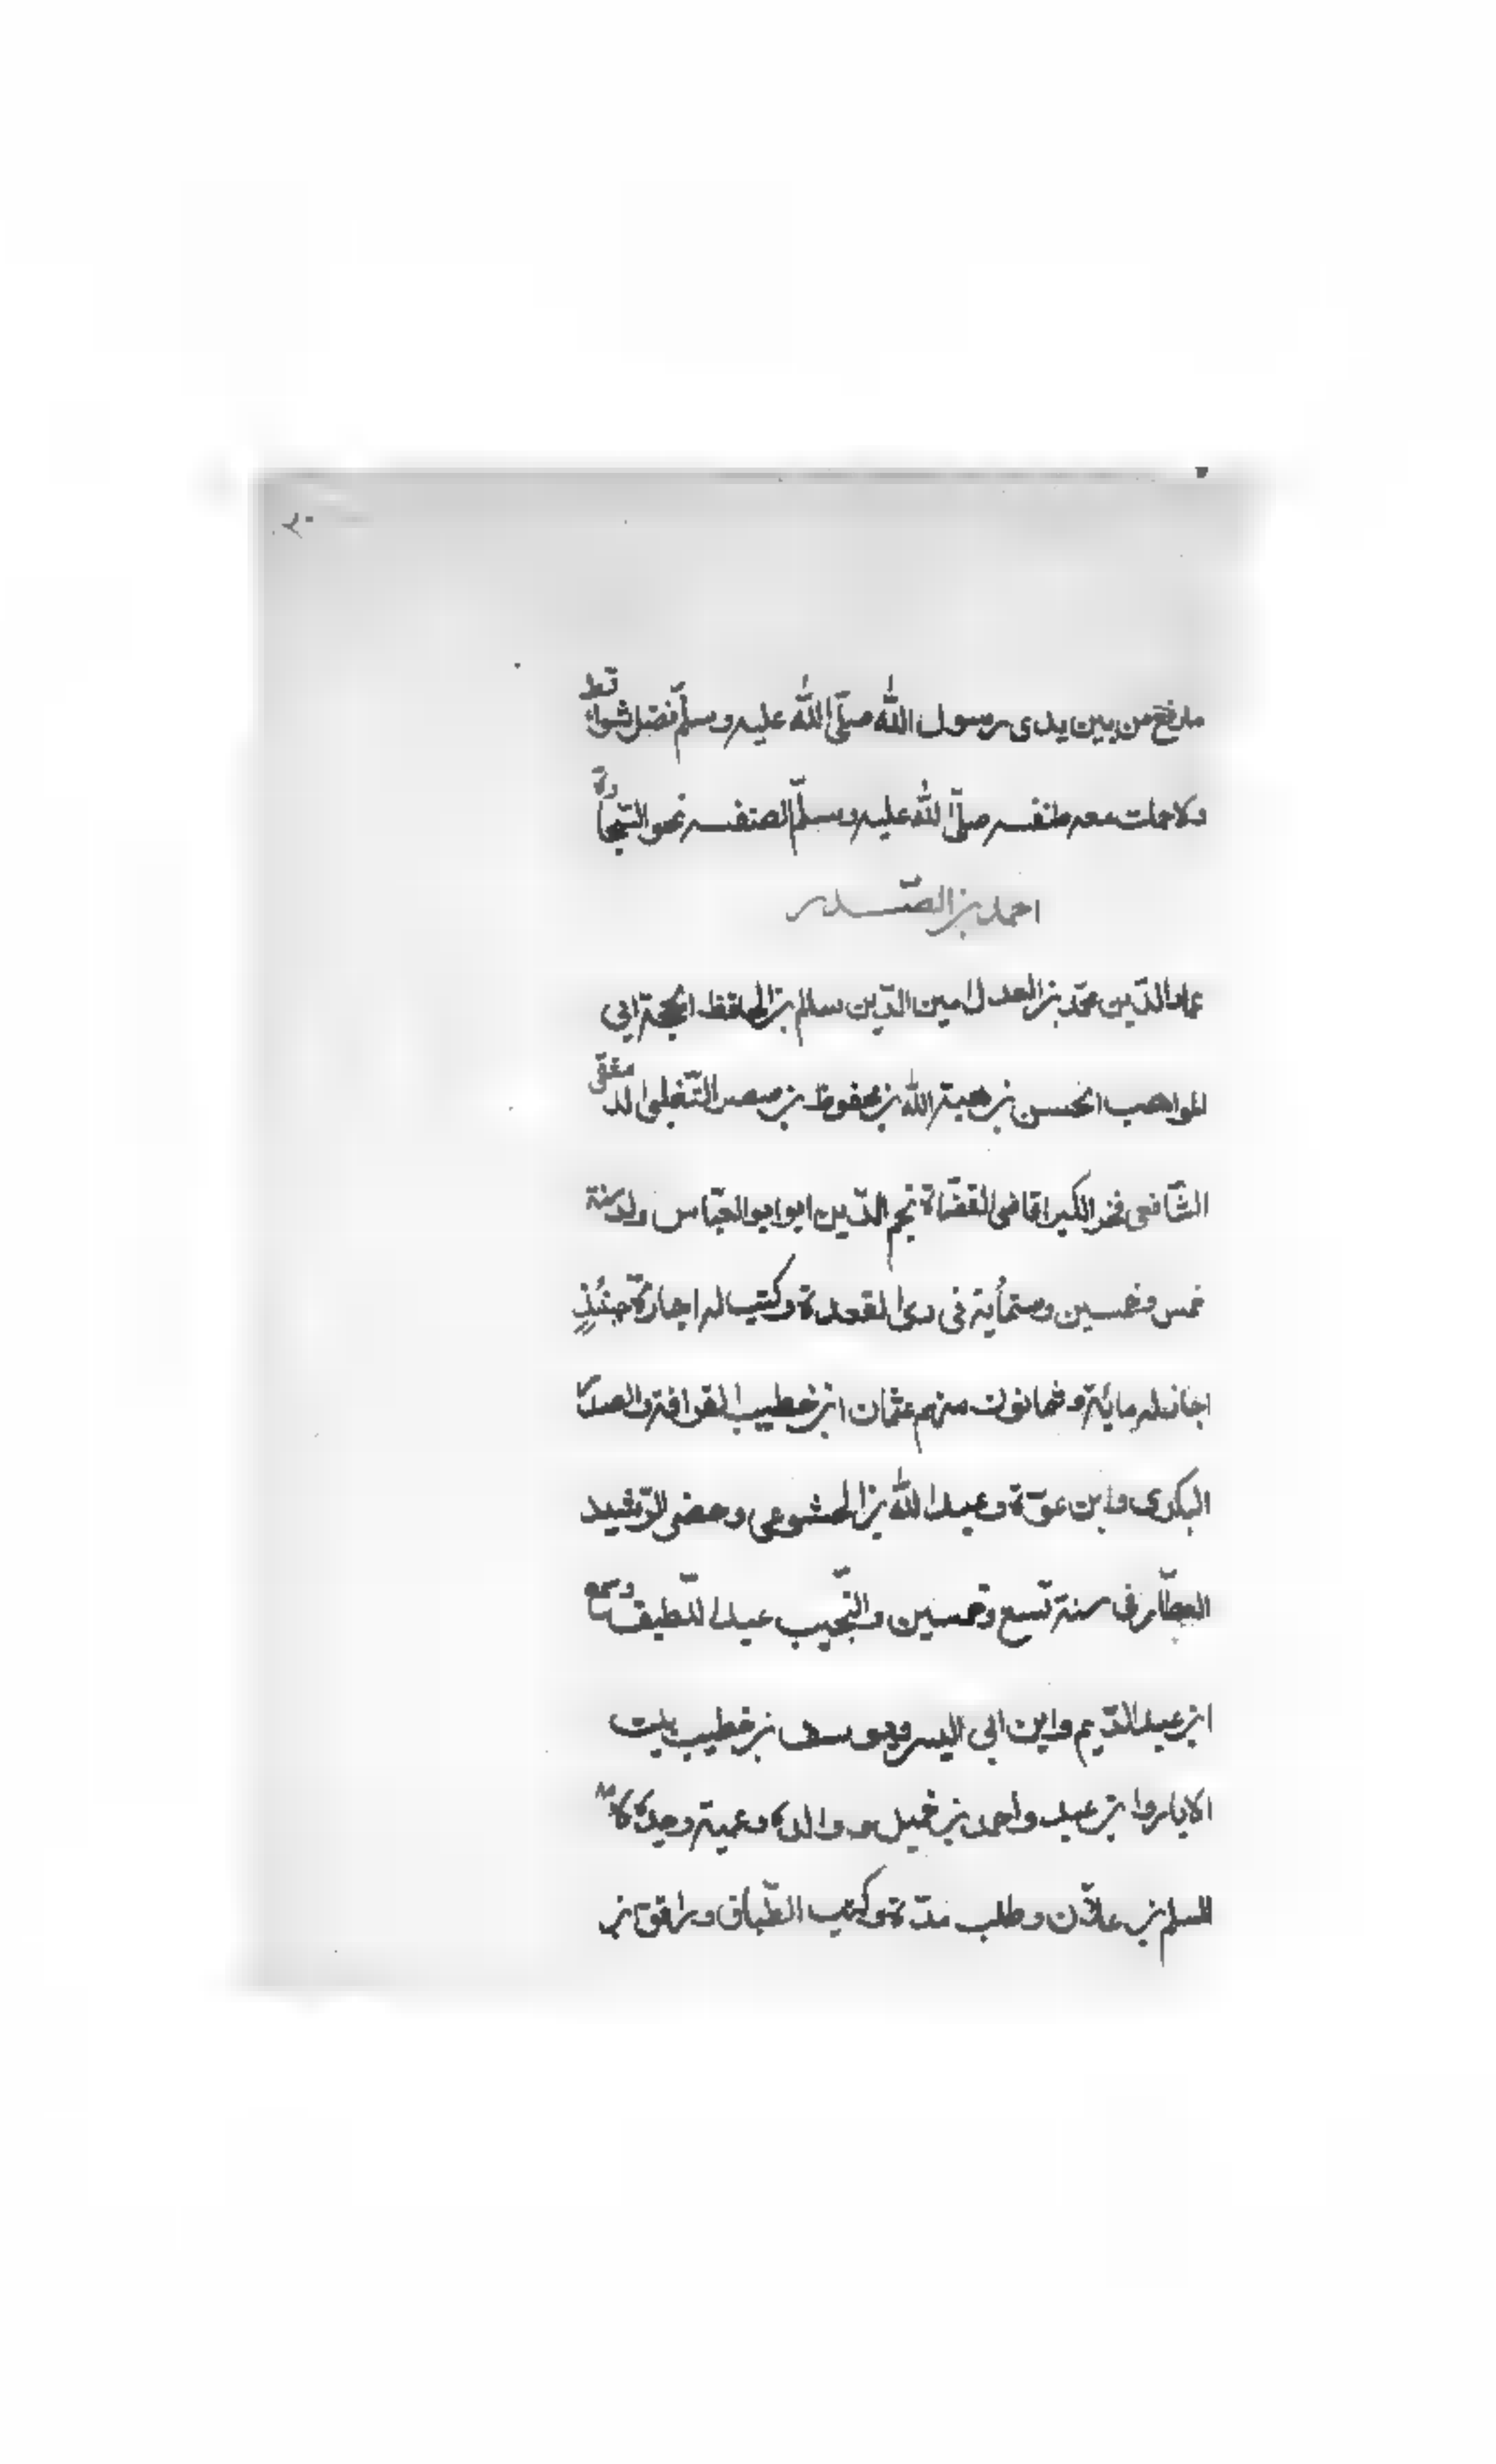 ٢٠
ما رفع من بين يدى رسول الله صلّى الله عليه وسلّم فضل شواء قط
ولا حملت معه طنفسه صلّى الله عليه وسلّم الصنفسه نحو السّجّادة
احمد بن الصّدر
عماد الدّين محمّد بن العدل امين الدّين سالم بن الحافظ الحجة ابى
المواهب الحسن بن هبة الله بن محفوظ بن صصر التّغلبى الدمشقى
الشّافعى فخر الكبرا قاضى القضاة نجم الدّين ابو ابو العبّاس ولد سنة
خمس وخمسين وستمأية فى دى القعدة وكتب له اجازة حينئذٍ
اجاز له ماية وثمانون منهم عثمان ابن خطيب القرافة والصدر
البكرى وابن عوّة وعبد الله بن الخشوعى وحضر الرّشيد
العطّار فى سنة تسع وخمسين والنّجيب عبد اللّطيف وسمع
ابن عبد الدّيم وابن ابى اليسر ويوسف بن خطيب بيت
الابار وابن عبد واحمد بن جميل ووالده وعميه وجده لامه
المسلم بن علاّن وطلب مدّة وكتب الطّباق ورافق ابن